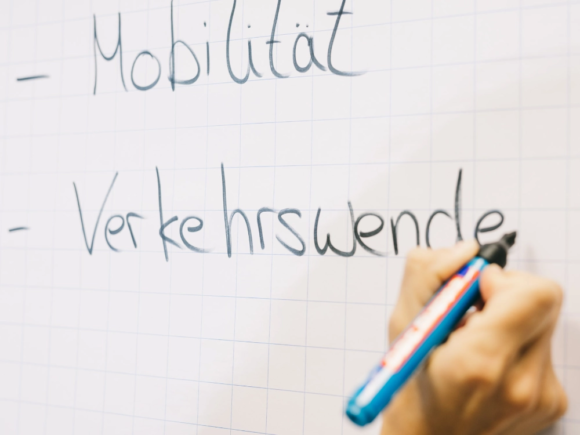 - Mobilität
- Verkehrswende